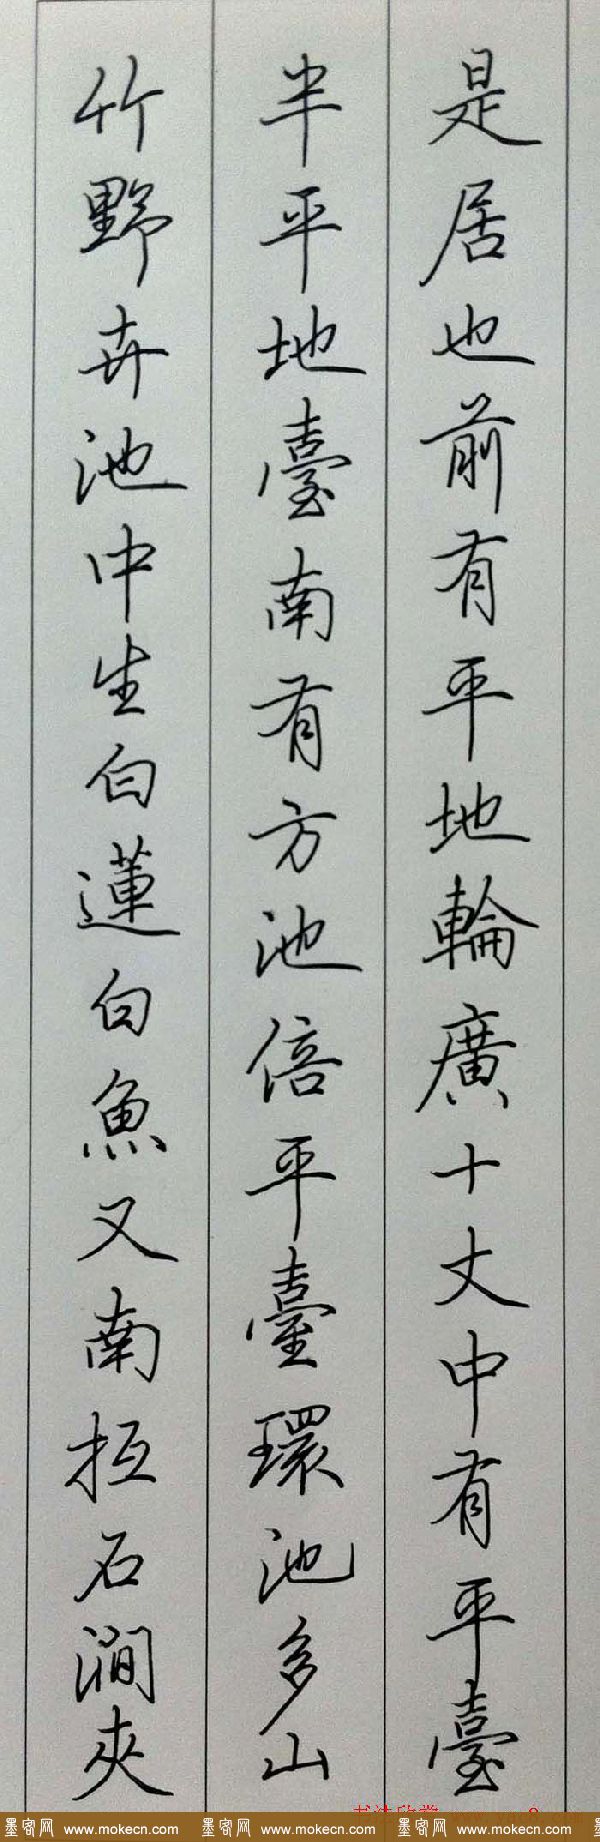 是居也前有平地輪廣十丈中有平臺
半平地臺南有方池倍平臺環池多山
竹野卉池中生白蓮白魚又南抵石澗夾
墨客网 www.mokecn.com 墨客网 www.mokecn.com 墨客网 www.mokecn.com